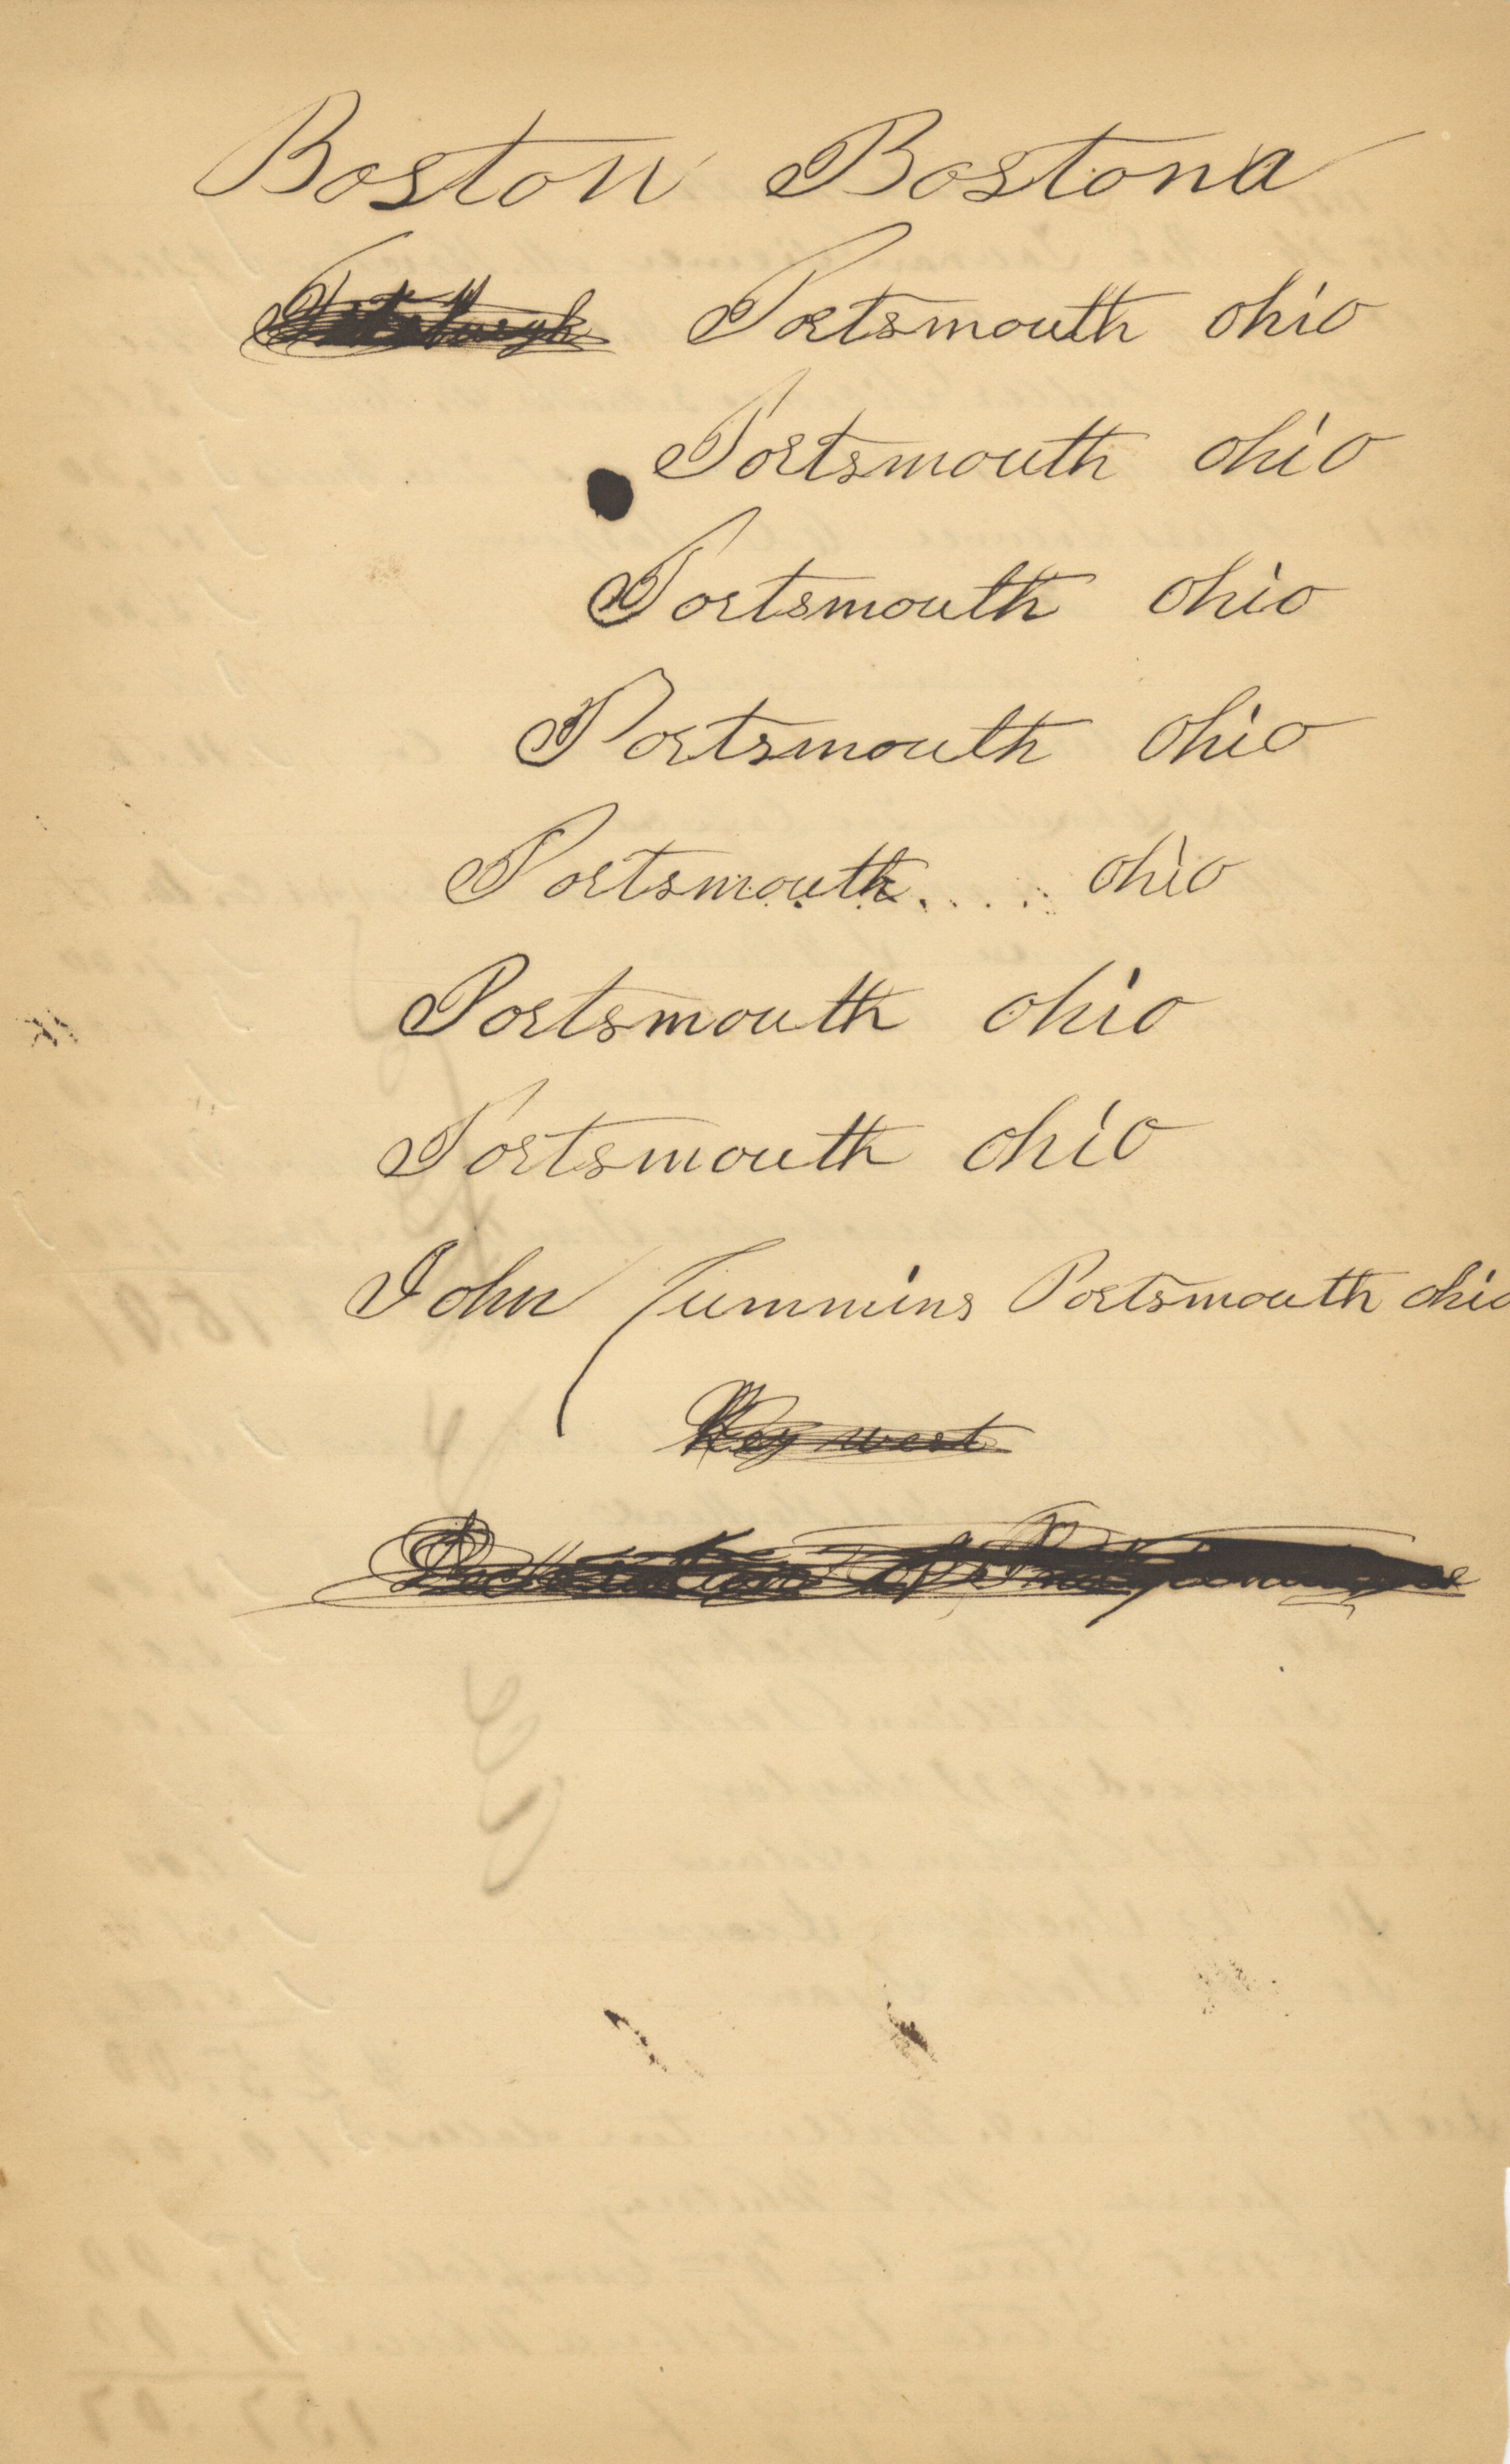 Boston Bostona
Pittsburgh Portsmouth ohio
Portsmouth ohio
Portsmouth ohio
Portsmouth ohio
Portsmouth.... ohio
Portsmouth ohio
Portsmouth ohio
John Tummins Portsmouth ohio
Key west